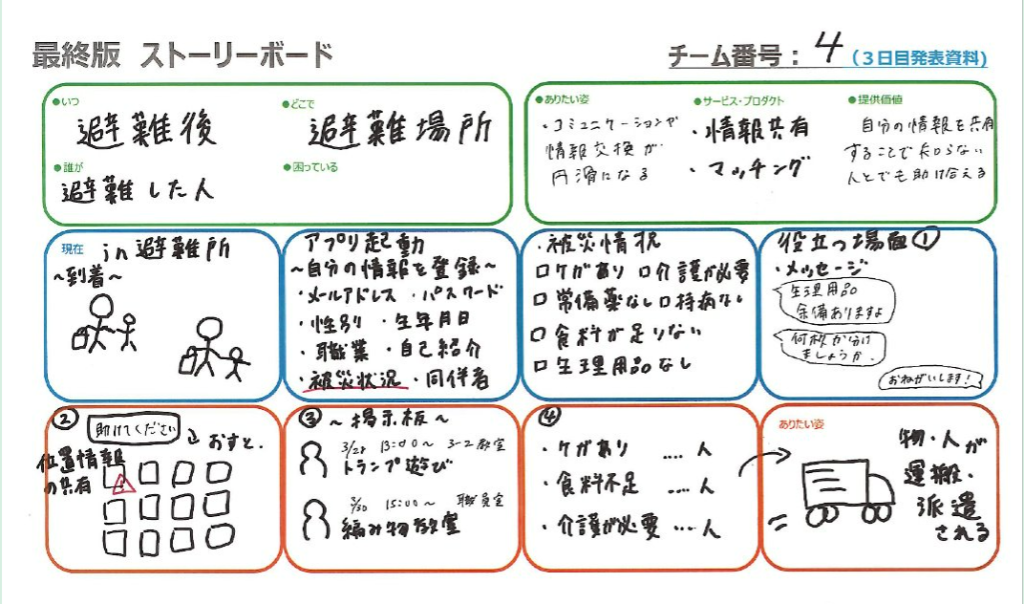 最終版 ストーリーボード
チーム番号: 4 (3日目発表資料)
●いつ
避難後
●どこで
避難場所
●誰が
避難した人
●困っている
●ありたい姿
・コミュニケーションや
情報交換が
円滑になる
●サービス・プロダクト
・情報共有
・マッチング
●提供価値
自分の情報を共有
することで知らない
人とでも助け合える
現在 in 避難所
~到着~
アプリ起動
~自分の情報を登録~
・メールアドレス ・パスワード
・性別 ・生年月日
・職業 ・自己紹介
・被災状況 ・同伴者
・被災情況
□ケガあり □介護が必要
□常備薬なし □持病なし
□食料が足りない
□生理用品なし
役立つ場面①
・メッセージ
生理用品
余備ありますよ
何枚か分け
ましょうか.
おねがいします!
②
助けてください
おすと.
位置情報
の共有
③ ~掲示板~
13:00~ 3-2教室
トランプ遊び
3/30 15:00~ 職員室
編み物教室
④
・ケガあり ....人
・食料不足 ....人
・介護が必要 ....人
ありたい姿
物・人が
運搬・
派遣
される